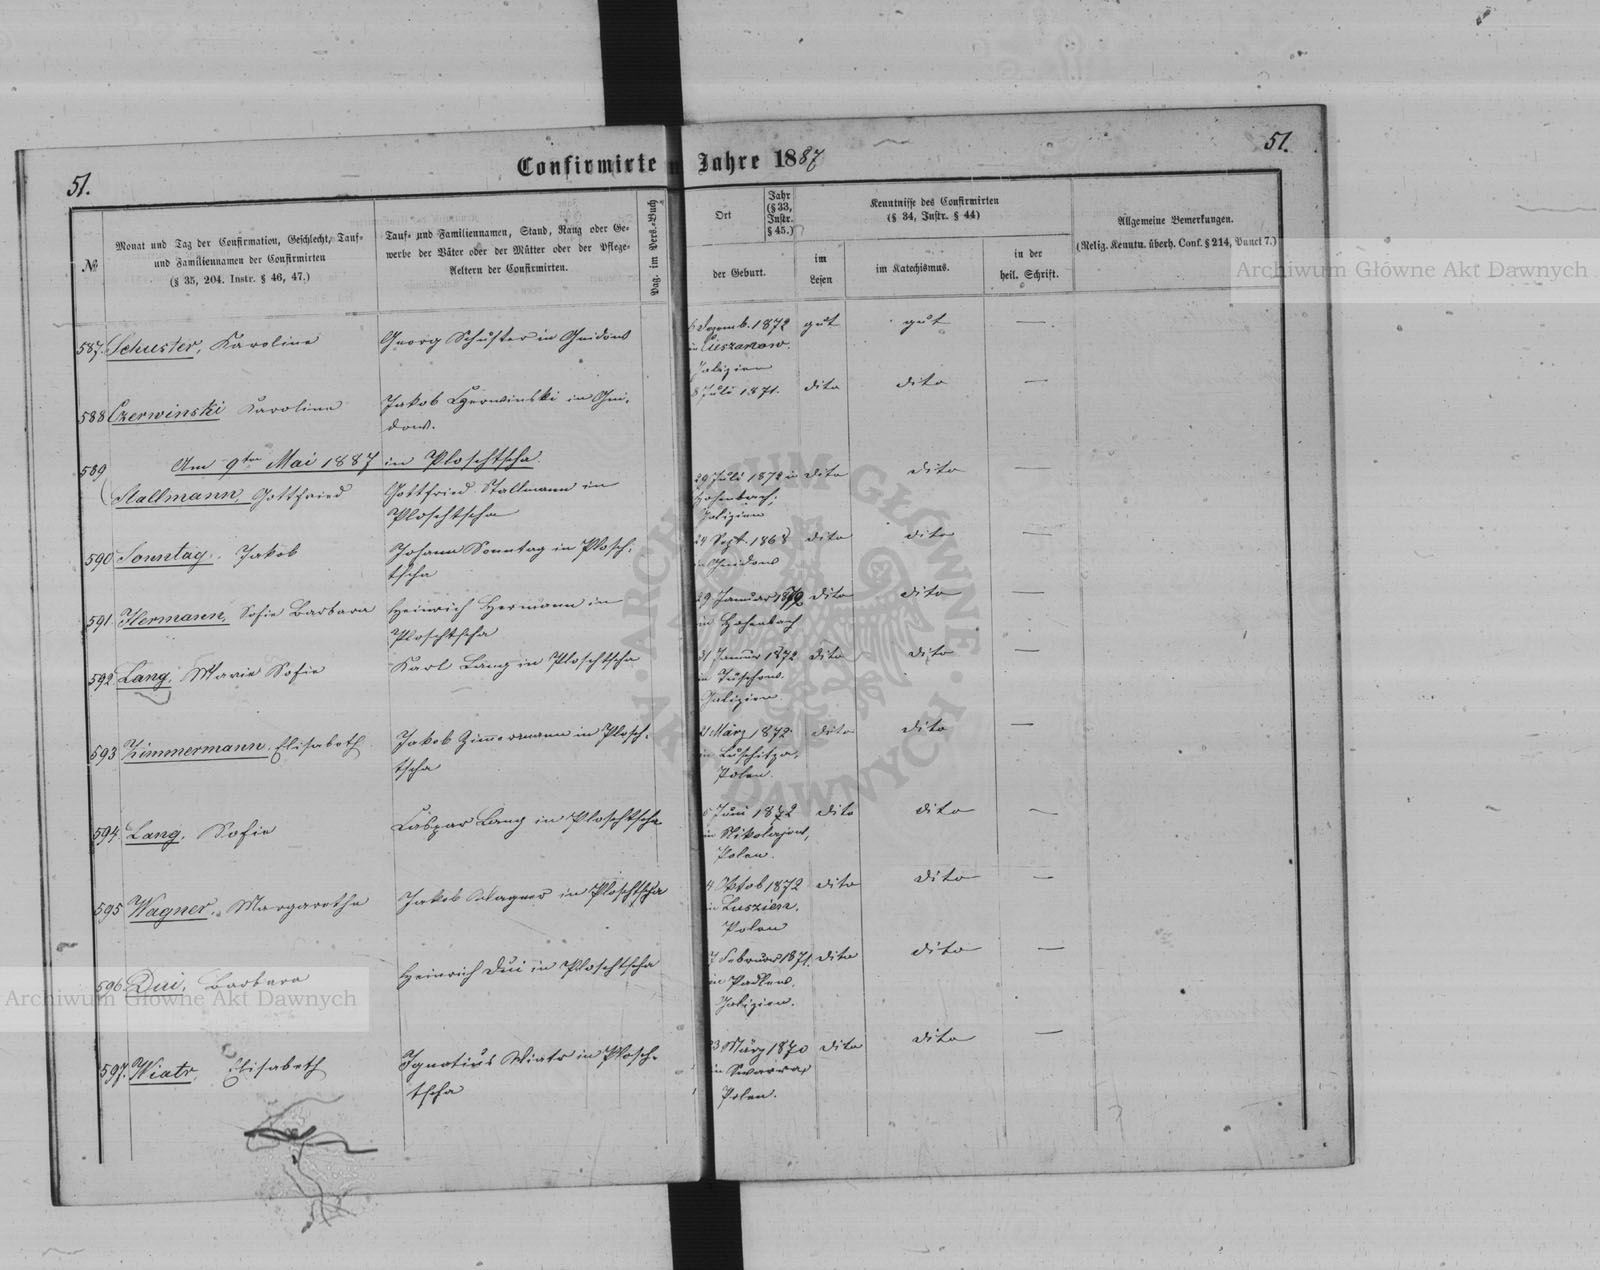 51.
Confirmirte
Jahre 1887
51.
№
Monat und Tag der Confirmation, Geschlecht, Tauf-
und Familiennamen der Confirmirten
(§ 35, 204. Instr. § 46, 47.)
Tauf- und Familiennamen, Stand, Rang oder Ge-
werbe der Väter oder der Mütter oder der Pflege-
Aeltern der Confirmirten.
Pag. im Pers.-Buch
Ort
Jahr
(§ 33,
Instr.
§ 45.)
der Geburt.
Kenntnisse des Confirmirten
(§ 34, Instr. § 44)
im
Lesen
im Katechismus.
in der
heil. Schrift.
Allgemeine Bemerkungen.
(Relig. Kenntn. überh. Conf. § 214, Punct 7.)
587. Schuster, Karoline
Georg Schuster in Gnidow
Dezemb. 1872 gut gut —
in Cieszanow.
Galizien
588 Czerwinski Karoline
Jakob Czerwinski in Gni-
dow.
8 Juli 1871. dito dito —
589 Am 9ten Mai 1887 in Ploschtscha.
Stallmann, Gottfried
Gottfried Stallmann in
Ploschtscha
29 Juli 1872 in dito dito —
Hohenbach,
Galizien
590 Sonntag. Jakob
Johann Sonntag in Plosch-
tscha
24 Sept. 1868 dito dito —
in Gnidow
591 Hermann, Sofie Barbara
Heinrich Hermann in
Ploschtscha
29 Januar 1872 dito dito —
in Hohenbach
592 Lang, Marie Sofie
Karl Lang in Ploschtscha
31 Januar 1872 dito dito —
in Tuschow.
Galizien
593 Zimmermann, Elisabeth
Jakob Zimmermann in Plosch-
tscha
21 März 1872 dito dito —
in Luschitza,
Polen.
594 Lang, Sofie
Caspar Lang in Ploschtscha
Juni 1872 dito dito —
in Nikolajow,
Polen.
595 Wagner, Margarethe
Jakob Wagner in Ploschtscha
4 Oktob 1872 dito dito —
in Luszien,
Polen
596 Dui, Barbara
Heinrich Dui in Ploschtscha
7 Februar 1871. dito dito —
in Padlew.
Galizien.
597. Wiatr, Elisabeth
Ignatius Wiatr in Plosch-
tscha
23 März 1870 dito dito —
in
Polen.
Archiwum Główne Akt Dawnych
Archiwum Główne Akt Dawnych
ARCHIWUM GŁÓWNE · AKT DAWNYCH ·